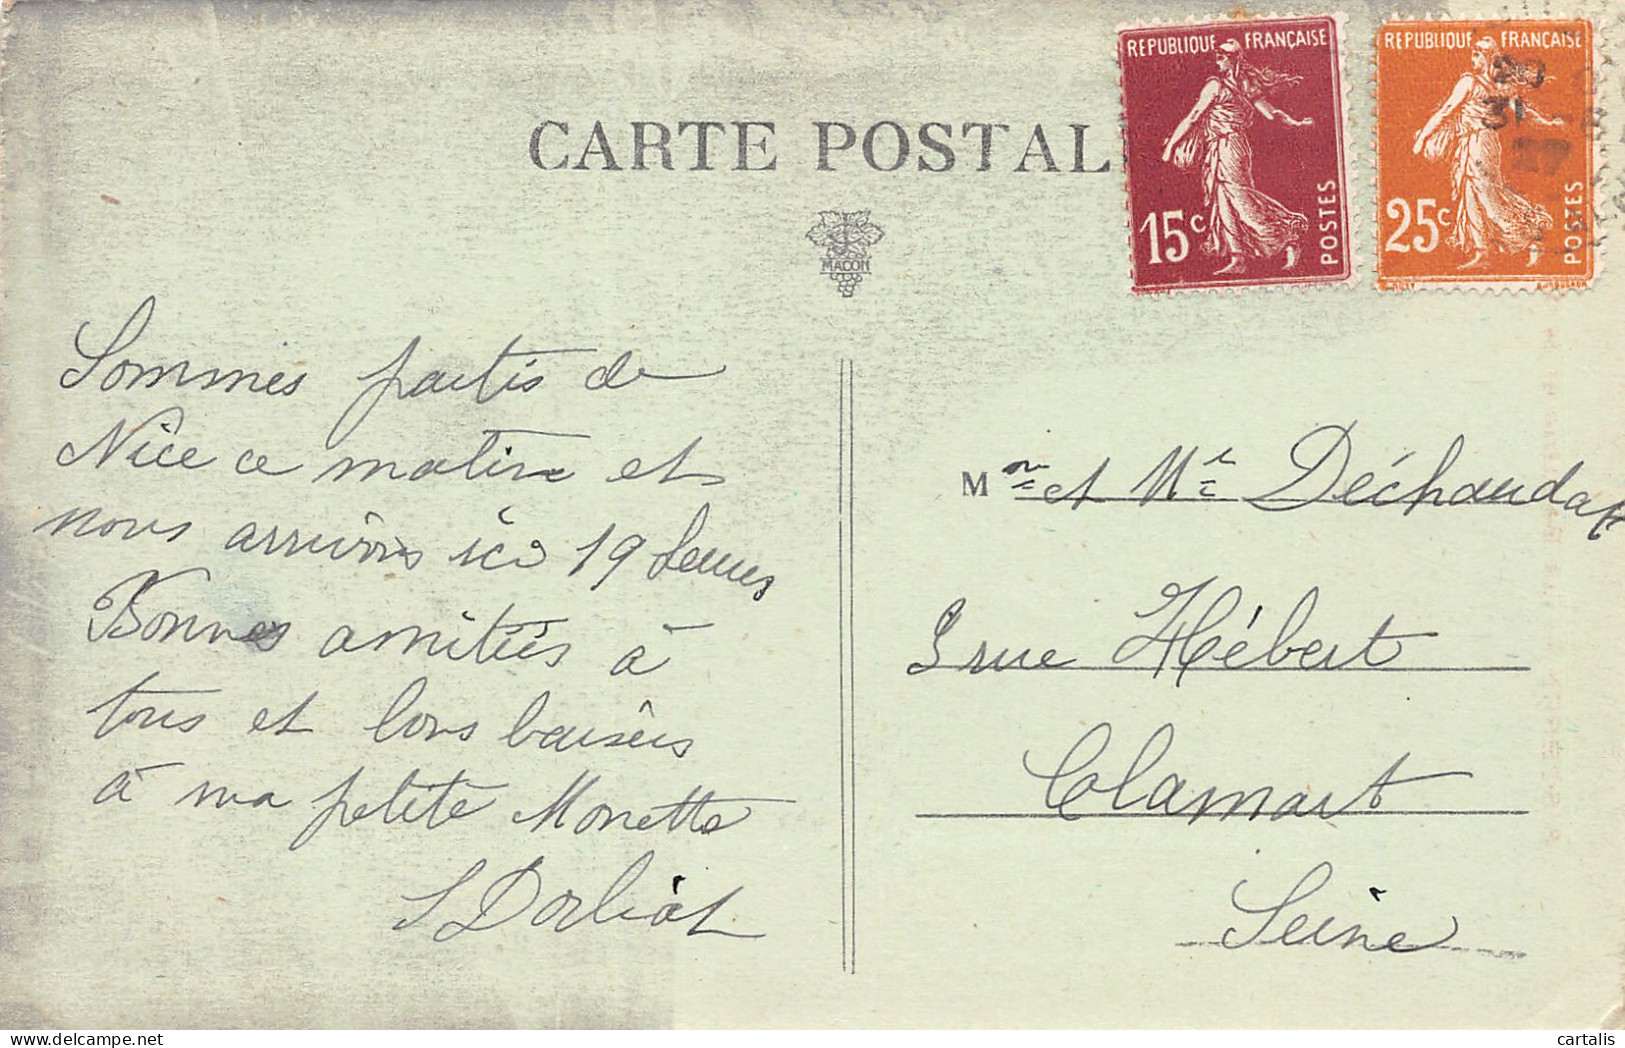 CARTE POSTAL
REPUBLIQUE FRANÇAISE
15c
POSTES
REPUBLIQUE FRANÇAISE
25c
POSTES
20
31
27
MACON
Sommes partis de
Nice ce matin et
nous arrivons ici 19 heures
Bonnes amitiés à
tous et bons baisers
à ma petite Monette
Dorliat
Mr et Me
rue Hébert
Clamart
Seine
cartalis